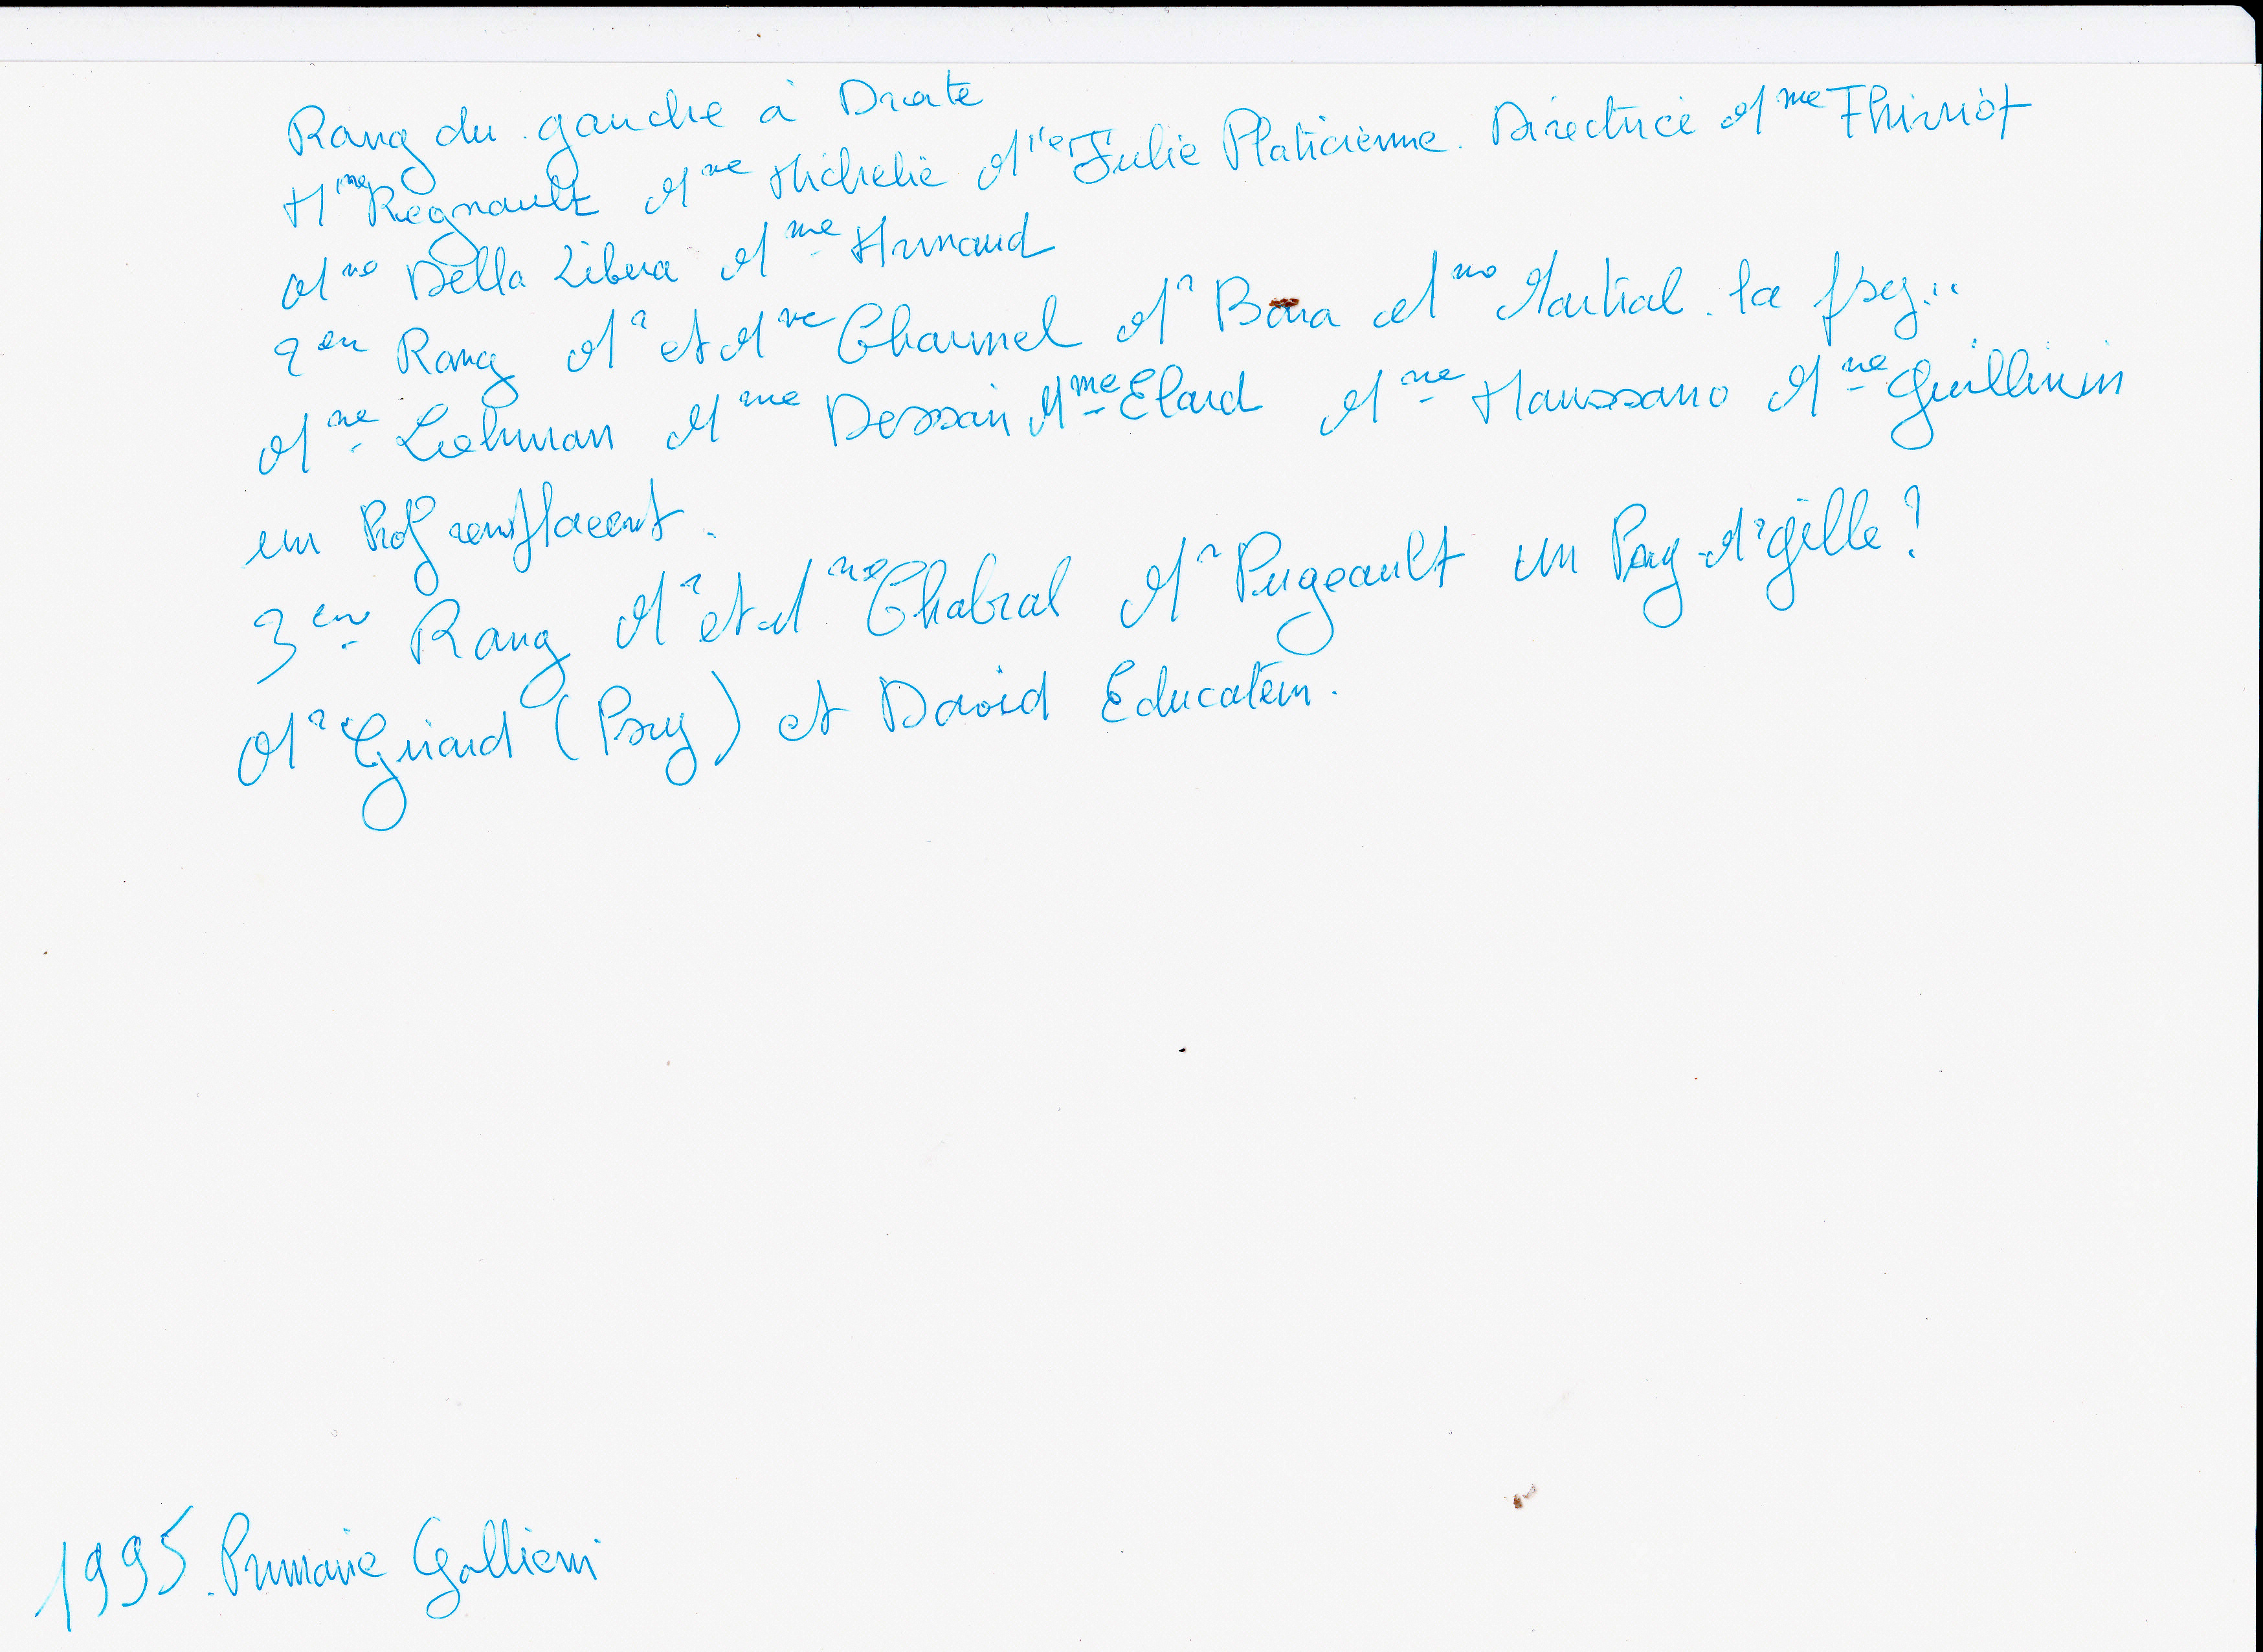 Rang du gauche à Droite
Mme Regnault Mme Michelle Mlle Julie Platicienne. Directrice Mme Thiriot
Mme Della Libera Mme Arnaud
2em Rang Mr et Mme Charmel Mr Bara Mme Martial. la psy...
Mme Lehman Mme Dessain Mme Elard Mme Haussano Mme Guillemin
un Prof remplacent.
3em Rang Mr et Mme Chabral Mr Pugeault un Psy Mr Gille?
Mr Girard (Psy) et David Educateur.
1995. Primaire Gallieni